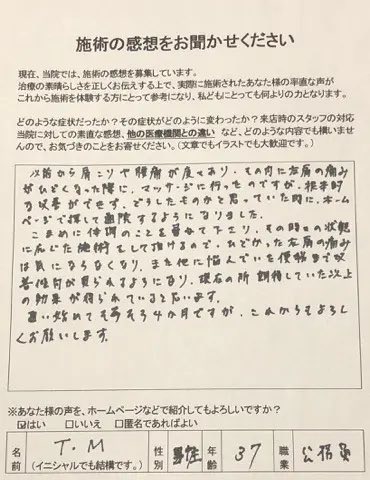 施術の感想をお聞かせください
現在、当院では、施術の感想を募集しています。
治療の素晴らしさを正しくお伝えする上で、実際に施術されたあなた様の率直な声が
これから施術を体験する方にとって参考になり、私どもにとっても何よりの力となります。
どのような症状だったか?その症状がどのように変わったか?来店時のスタッフの対応
当院に対しての素直な感想、他の医療機関との違い など、どのような内容でも構いませ
んので、お気づきのことをお寄せください。(文章でもイラストでも大歓迎です。)
以前から肩こりや腰痛が度々あり、その内に左肩の痛み
がひどくなった際に、マッサージに行ったのですが、根本的
な改善ができず、どうしたものかと思っていた時に、ホーム
ページで探して通院するようになりました。
こまめに体調のことを尋ねて下さり、その時々の状態
に応じた施術をして頂けるので、ひどかった左肩の痛み
は気にならなくなり、また他に悩んでいた便秘まで改
善傾向が見られるようになり、現在の所、期待していた以上
の効果が得られていると思います。
通い始めてそろそろ4か月ですが、これからもよろし
くお願いします。
※あなた様の声を、ホームページなどで紹介してもよろしいですか?
☑はい □いいえ □匿名であればよい
名前 T.M (イニシャルでも結構です。) 性別 男性 年齢 37 職業 公務員